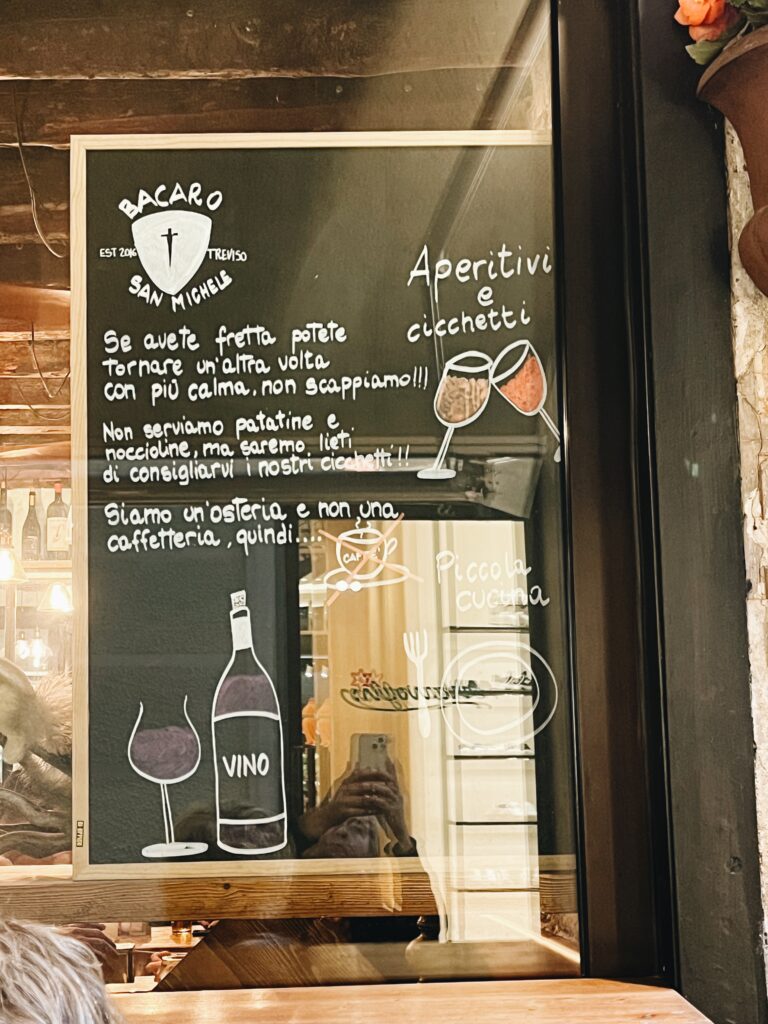 BACARO
EST 2016 TREVISO
SAN MICHELE
Aperitivi
e
cicchetti
Se avete fretta potete
tornare un'altra volta
con più calma, non scappiamo!!!
Non serviamo patatine e
noccioline, ma saremo lieti
di consigliarvi i nostri cicchetti!!
Siamo un'osteria e non una
caffetteria, quindi....
CAFFÈ
Piccola
cucina
VINO